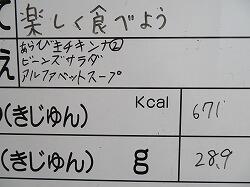 て 楽しく食べよう
え あらびきチキンナ②
ビーンズサラダ
アルファベットスープ
Kcal
(きじゅん) 671
(きじゅん) g 28.9